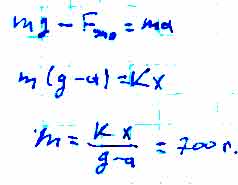 mg - Fупр = ma
m(g-a) = Kx
m = Kx / g-a = 700 г.